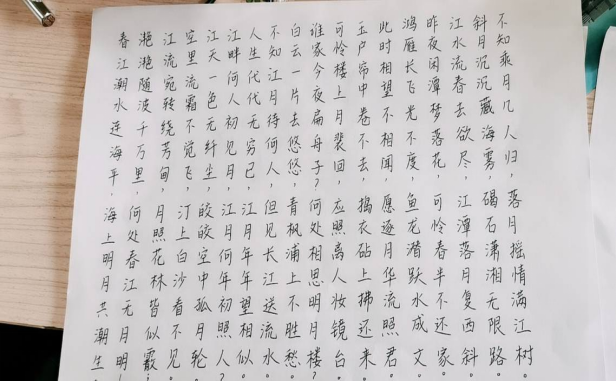 春江潮水连海平，海上明月共潮生。
滟滟随波千万里，何处春江无月明！
江流宛转绕芳甸，月照花林皆似霰。
空里流霜不觉飞，汀上白沙看不见。
江天一色无纤尘，皎皎空中孤月轮。
江畔何人初见月？江月何年初照人？
人生代代无穷已，江月年年望相似。
不知江月待何人，但见长江送流水。
白云一片去悠悠，青枫浦上不胜愁。
谁家今夜扁舟子？何处相思明月楼？
可怜楼上月裴回，应照离人妆镜台。
玉户帘中卷不去，捣衣砧上拂还来。
此时相望不相闻，愿逐月华流照君。
鸿雁长飞光不度，鱼龙潜跃水成文。
昨夜闲潭梦落花，可怜春半不还家。
江水流春去欲尽，江潭落月复西斜。
斜月沉沉藏海雾，碣石潇湘无限路。
不知乘月几人归，落月摇情满江树。